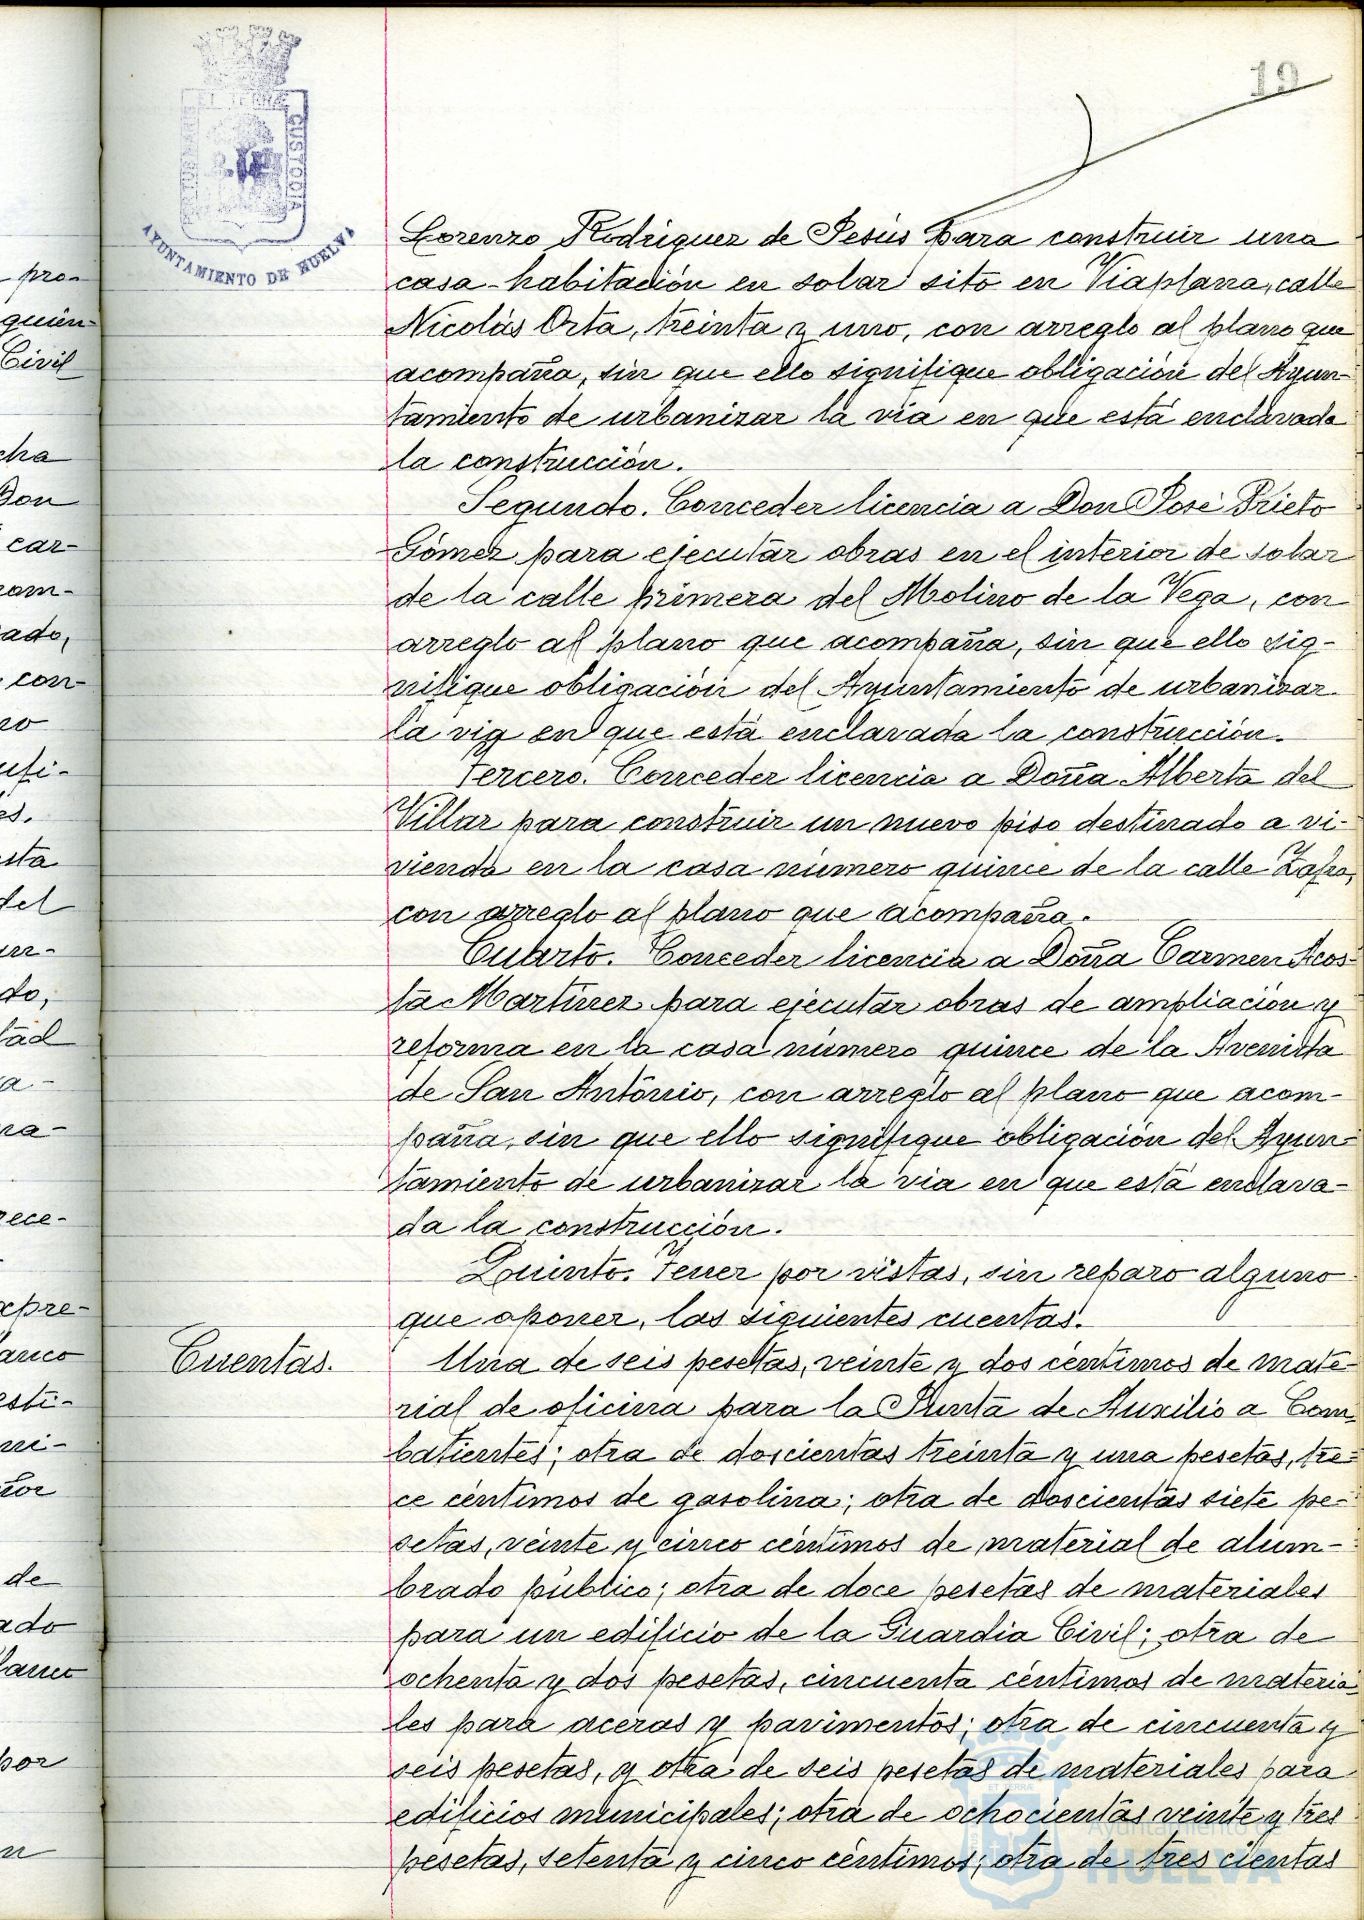 19
PORTUS MARIS
ET TERRÆ
CUSTODIA
AYUNTAMIENTO DE HUELVA
pro-
quien-
Civil
cha
Don
car-
com-
ado,
con-
ro
ufi-
es.
sta
del
un-
do,
tad
a-
na-
rece-
xpre-
anco
esti-
mi-
tor
de
ado
lanco
por
n
Lorenzo Rodríguez de Jesús para construir una
casa-habitación en solar sito en Viaplana, calle
Nicolás Orta, treinta y uno, con arreglo al plano que
acompaña, sin que ello signifique obligación del Ayun-
tamiento de urbanizar la via en que está enclavada
la construcción.
Segundo. Conceder licencia a Don José Prieto
Gómez para ejecutar obras en el interior de solar
de la calle primera del Molino de la Vega, con
arreglo al plano que acompaña, sin que ello sig-
nifique obligación del Ayuntamiento de urbanizar
la via en que está enclavada la construcción.
Tercero. Conceder licencia a Doña Alberta del
Villar para construir un nuevo piso destinado a vi-
vienda en la casa número quince de la calle Zafra,
con arreglo al plano que acompaña.
Cuarto. Conceder licencia a Doña Carmen Acos-
ta Martínez para ejecutar obras de ampliación y
reforma en la casa número quince de la Avenida
de San Antonio, con arreglo al plano que acom-
paña, sin que ello signifique obligación del Ayun-
tamiento de urbanizar la via en que está enclava-
da la construcción.
Quinto. Tener por vistas, sin reparo alguno
que oponer, las siguientes cuentas.
Cuentas.
Una de seis pesetas, veinte y dos céntimos de mate-
rial de oficina para la Junta de Auxilio a Com-
batientes; otra de doscientas treinta y una pesetas, tre-
ce céntimos de gasolina; otra de doscientas siete pe-
setas, veinte y cinco céntimos de material de alum-
brado público; otra de doce pesetas de materiales
para un edificio de la Guardia Civil; otra de
ochenta y dos pesetas, cincuenta céntimos de materia-
les para aceras y pavimentos; otra de cincuenta y
seis pesetas, y otra de seis pesetas de materiales para
edificios municipales; otra de ochocientas veinte y tres
pesetas, setenta y cinco céntimos; otra de tres cientas
Ayuntamiento de
HUELVA